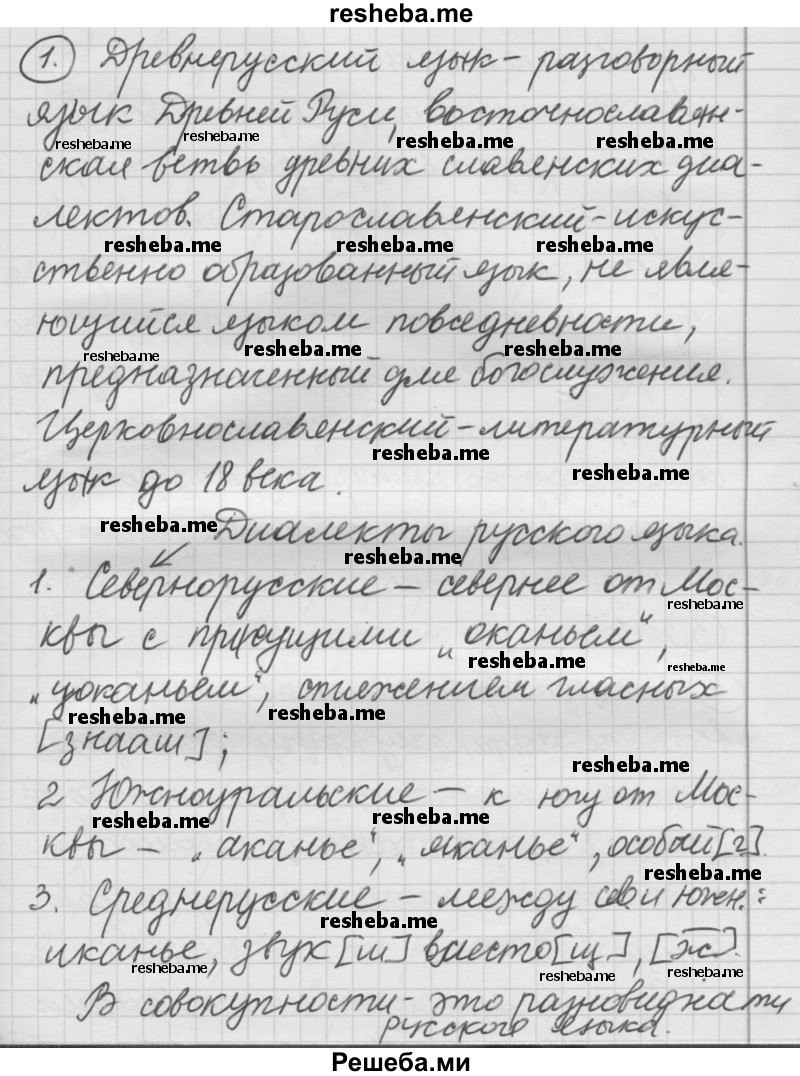 resheba.me
1. Древнерусский язык - разговорный
язык Древней Руси, восточнославян-
resheba.me resheba.me resheba.me resheba.me
ская ветвь древних славянских диа-
лектов. Старославянский - искус-
resheba.me resheba.me resheba.me
ственно образованный язык, не явля-
ющийся языком повседневности,
resheba.me resheba.me resheba.me
предназначенный для богослужения.
Церковнославянский - литературный
resheba.me
язык до 18 века.
resheba.me
resheba.me
Диалекты русского языка.
resheba.me
1. Севернорусские - севернее от Мос-
resheba.me
квы с присущими „оканьем“,
resheba.me resheba.me
„цоканьем“, стяжением гласных
resheba.me resheba.me
[знааш];
resheba.me
2 Южноуральские - к югу от Мос-
resheba.me
квы - „аканье“, „яканье“, особый [г].
resheba.me
3. Среднерусские - между сев и южн.:
resheba.me
иканье, звук [ш] вместо [щ], [ж].
resheba.me resheba.me resheba.me
В совокупности - это разновидности
русского языка.
Решеба.ми